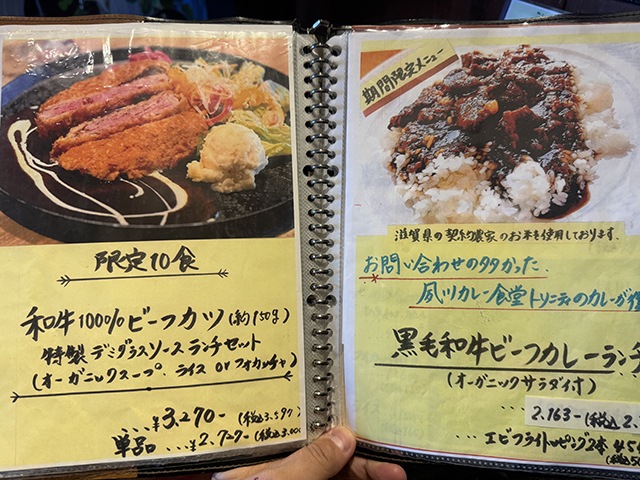 限定10食
和牛100%ビーフカツ(約150g)
特製デミグラスソースランチセット
(オーガニックスープ、ライス or フォカッチャ)
...¥3.270-(税込3.597
単品...¥2.727-(税込3.00
期間限定メニュー
滋賀県の契約農家のお米を使用しております.
お問い合わせの多かった、
夙川カレー食堂トリニティのカレーが復
黒毛和牛ビーフカレーランチ
(オーガニックサラダ付)
...2.163-(税込2.
...エビフライトッピング2本 ¥5
(税込50